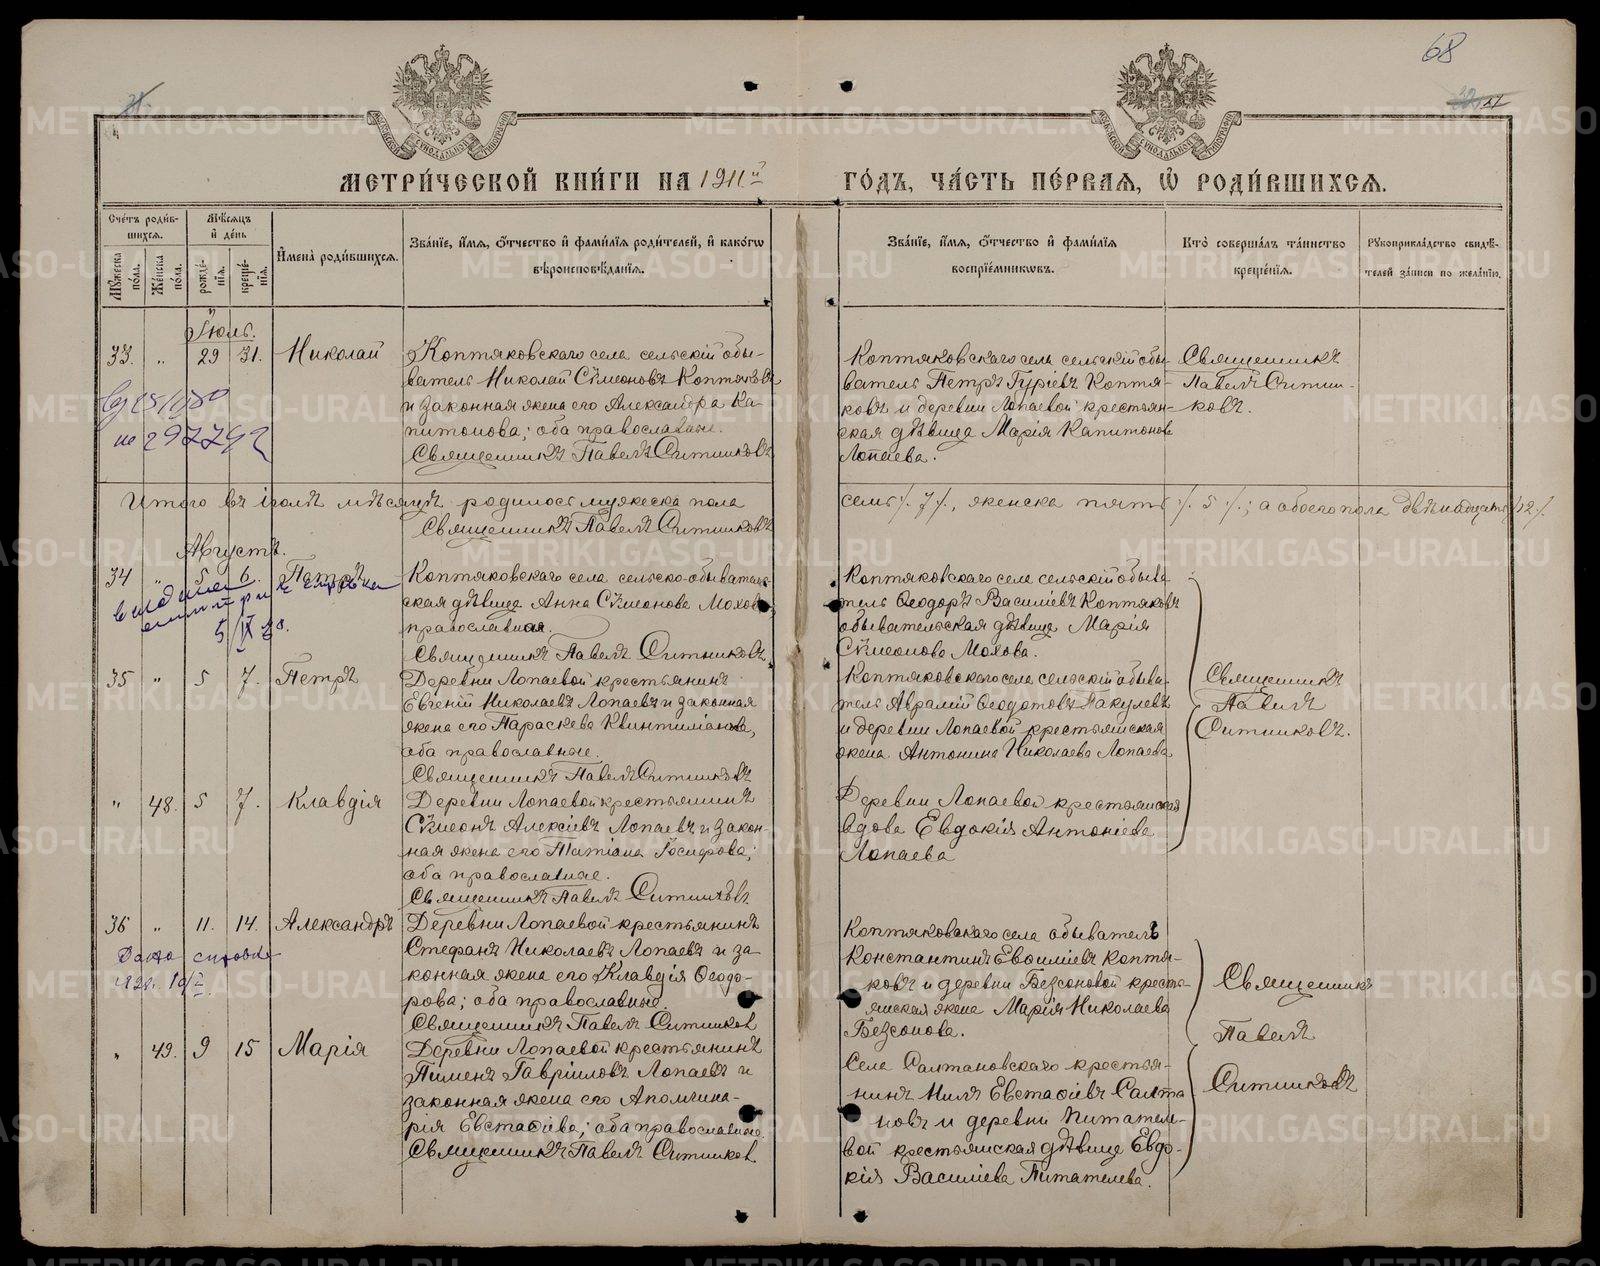 68
МЕТРИ́ЧЕСКОЙ КНИ́ГИ НА 1911 й
ГО́ДЪ, ЧА́СТЬ ПЕ́РВАЯ, Ѡ РОДИ́ВШИХСЯ.
Сче́тъ роди́в-
шихся.
Мѣ́сяцъ
и де́нь
Му́жеска по́ла.
Же́нска по́ла.
рожде́нія.
креще́нія.
Имена̀ роди́вшихся.
Зва́ніе, и́мя, о́тчество и фами́лія роди́телей, и како́гѡ
вѣроисповѣ́данія.
Зва́ніе, и́мя, о́тчество и фами́лія
воспріе́мникѡвъ.
Кто̀ соверша́лъ та́инство
креще́нія.
Рукоприкла́дство свидѣ́-
телей за́писи по жела́нію.
Іюль.
33. " 29 31. Николай
Коптяковскаго села сельскій обы-
ватель Николай Сѵмеоновъ Коптяковъ
и законная жена его Александра Ка-
питонова; оба православные.
Священникъ Павелъ Ситниковъ
Коптяковскаго села сельскій обы-
ватель Петръ Гуріевъ Коптя-
ковъ и деревни Лопаевой крестьян-
ская дѣвица Марія Капитонова
Лопаева.
Священникъ
Павелъ Ситни-
ковъ.
Итого въ іюлѣ мѣсяцѣ родилось мужеска пола
семь ./. 7 ./., женска пять ./. 5 ./.; а обоего пола двѣнадцать ./. 12 ./.
Священникъ Павелъ Ситниковъ
Августъ.
34 " 5 6. Петръ
Коптяковскаго села сельско-обыватель-
ская дѣвица Анна Сѵмеонова Мохова,
православная.
Священникъ Павелъ Ситниковъ
Коптяковскаго села сельскій обыва
тель Ѳеодоръ Василіевъ Коптяковъ
обывательская дѣвица Марія
Сѵмеонова Мохова.
5/IX
35 " 5 7. Петръ
Деревни Лопаевой крестьянинъ
Евгеній Николаевъ Лопаевъ и законная
жена его Параскева Квинтиліанова,
оба православные.
Священникъ Павелъ Ситниковъ
Коптяковскаго села сельскій обыва-
тель Аврамій Ѳеодотовъ Пакулевъ
и деревни Лопаевой крестьянская
жена Антонина Николаева Лопаева
Священникъ
Павелъ
Ситниковъ.
" 48. 5 7. Клавдія
Деревни Лопаевой крестьянинъ
Сѵмеонъ Алексіевъ Лопаевъ и закон-
ная жена его Татіана Іосифова;
оба православные.
Священникъ Павелъ Ситниковъ
Деревни Лопаевой крестьянская
вдова Евдокія Антоніева
Лопаева
36 " 11. 14. Александръ
Дана справка
Деревни Лопаевой крестьянинъ
Стефанъ Николаевъ Лопаевъ и за
конная жена его Клавдія Ѳеодо-
рова; оба православные.
Священникъ Павелъ Ситниковъ
Коптяковскаго села обыватель
Константинъ Евѳиміевъ Коптя-
ковъ и деревни Безсоновой кресть-
янская жена Марія Николаева
Безсонова.
Священникъ
Павелъ
Ситниковъ
" 49. 9 15 Марія
Деревни Лопаевой крестьянинъ
Пименъ Гавріиловъ Лопаевъ и
законная жена его Аполлина-
рія Евстафіева; оба православные.
Священникъ Павелъ Ситниковъ
Села Салтановскаго крестья-
нинъ Нилъ Евстафіевъ Салта
новъ и деревни Питателе-
вой крестьянская дѣвица Евдо-
кія Василіева Питателева.
METRIKI.GASO-URAL.RU